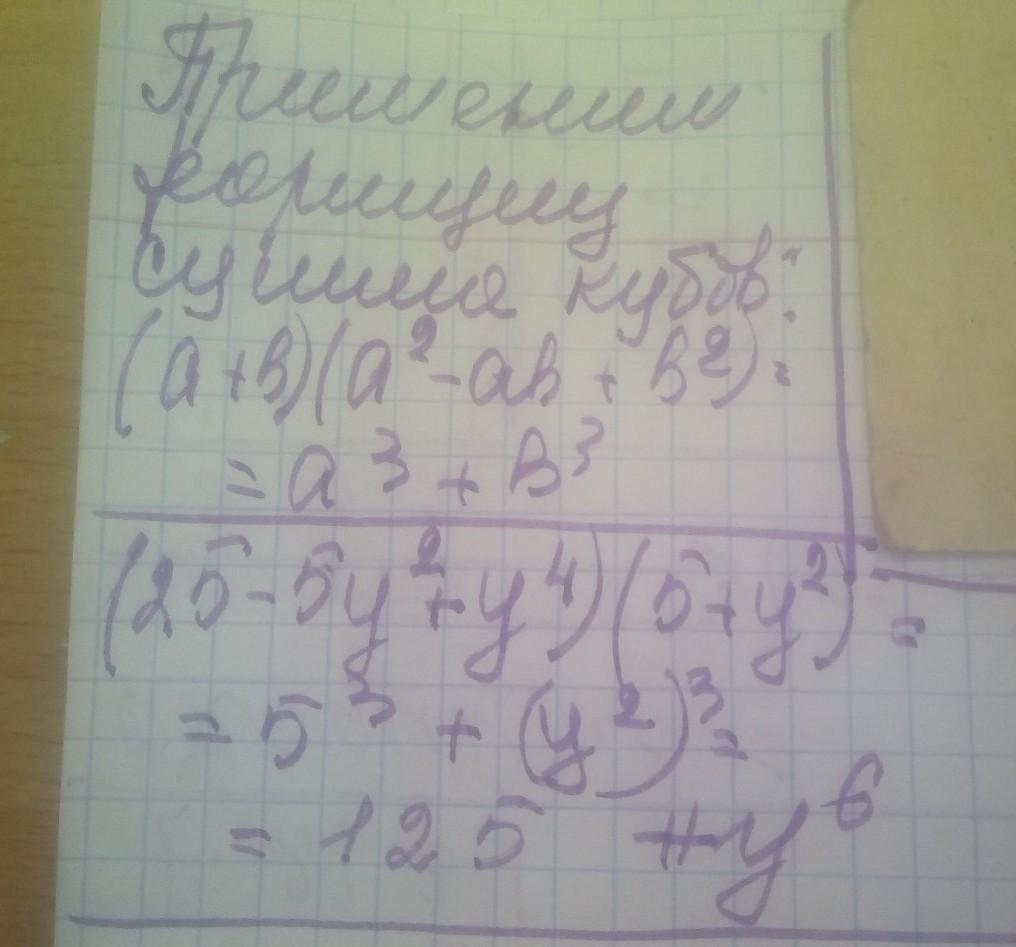 Применим
формулу
сумма кубов:
(a+b)(a²-ab+b²)=
=a³+b³
(25-5y²+y⁴)(5+y²)=
=5³+(y²)³=
=125+y⁶